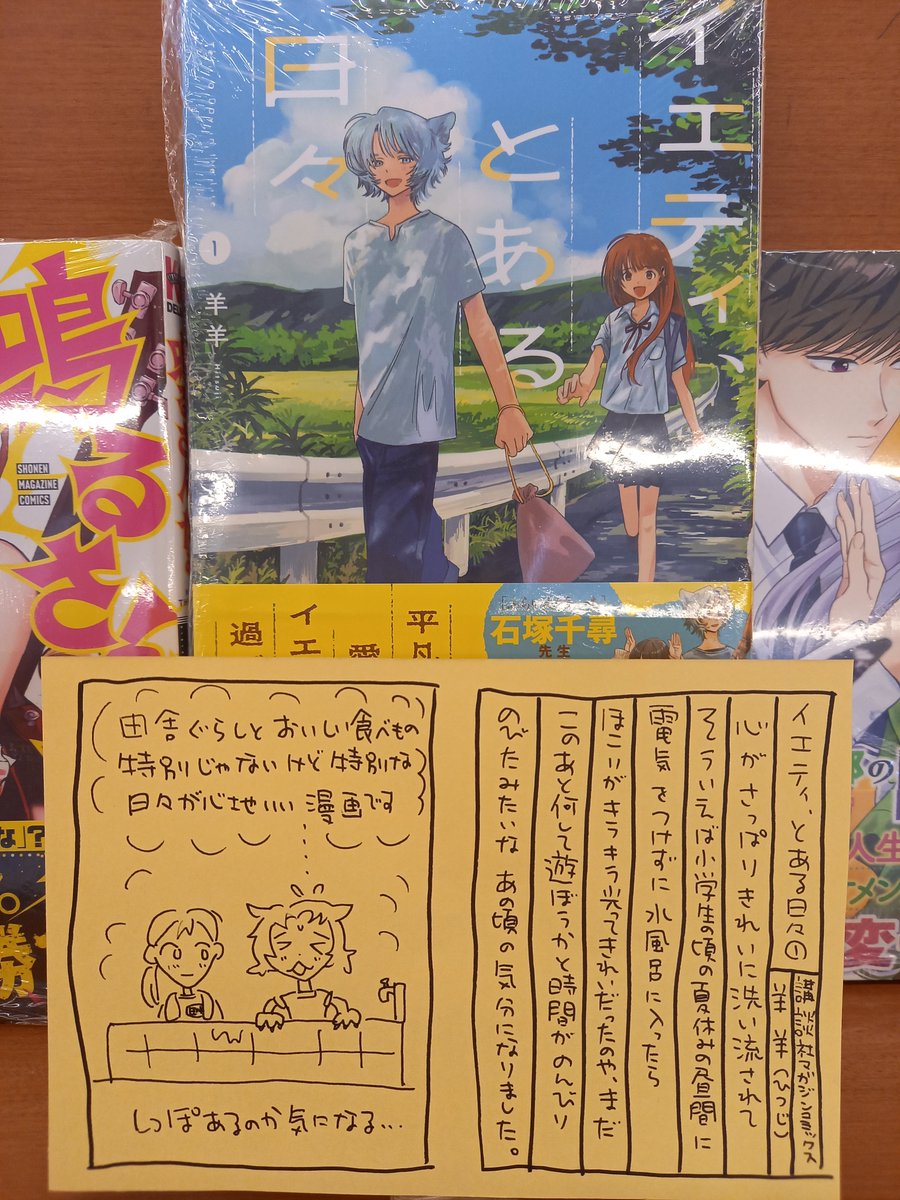 イエティ、
とある
日々
1
羊羊
Hitsuji
平凡
愛
イエ
過
石塚千尋
先生
鳴
るさ
SHONEN
MAGAZINE
COMICS
な」?
勝
の
人生
メン
変
イエティ、とある日々①
講談社マガジンコミックス
羊羊(ひつじ)
心がさっぱりきれいに洗い流されて
そういえば小学生の頃の夏休みの昼間に
電気をつけずに水風呂に入ったら
ほこりがキラキラ光ってきれいだったのや、まだ
このあと何して遊ぼうかと時間がのんびり
のびたみたいな あの頃の気分になりました。
田舎ぐらしと おいしい食べもの
特別じゃないけど特別な
日々が心地いい 漫画です
しっぽあるのか気になる...